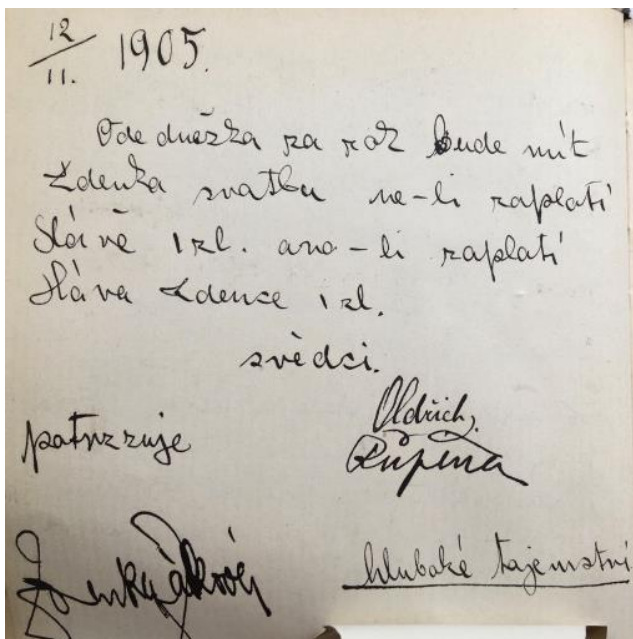 12
11. 1905.
Ode dnežka za rok bude mít
Zdenka svatbu ne-li zaplatí
Slávě 1 zl. ano-li zaplatí
Sláva Zdence 1 zl.
svědci.
Oldřich,
potvrzuje
hluboké tajemství